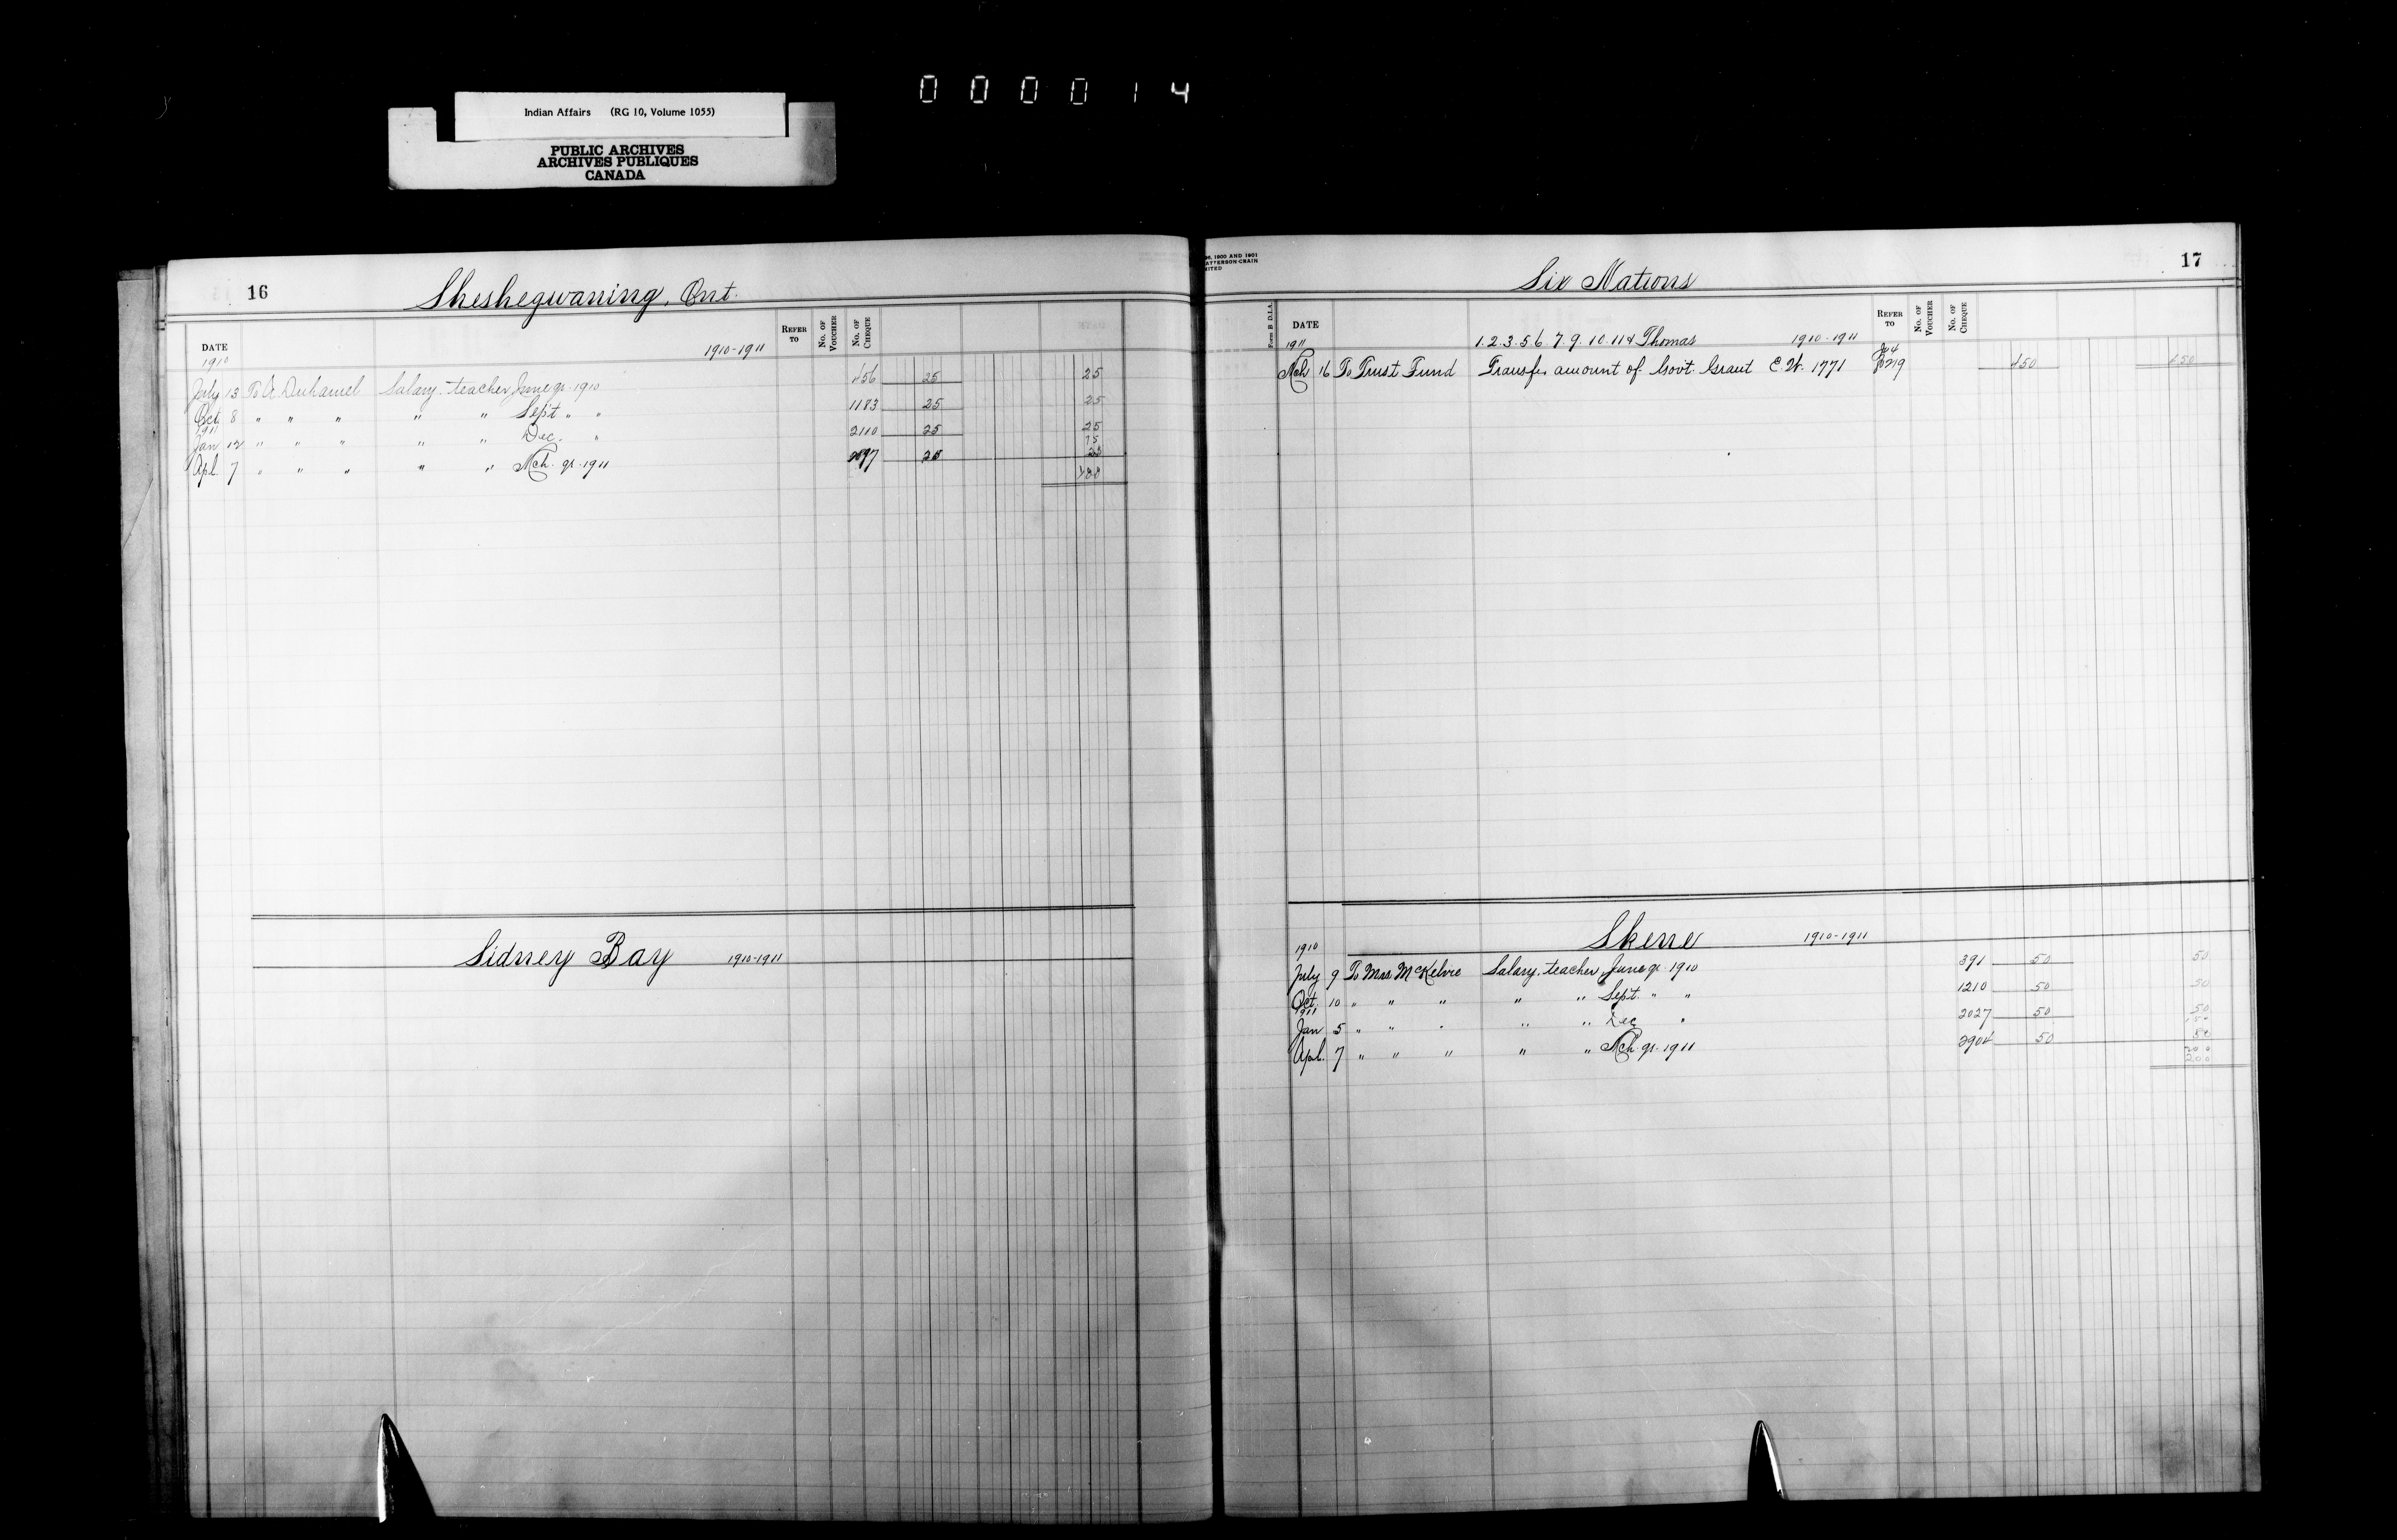 000014
Indian Affairs (RG 10, Volume 1055)
PUBLIC ARCHIVES
ARCHIVES PUBLIQUES
CANADA
16
Sheshegwaning, Ont.
DATE REFER TO No. OF VOUCHER No. OF CHEQUE
1910 1910-1911
July 13 To A. Duhamel Salary teacher June qr. 1910 456 25 25
Oct. 8 " " " " " Sept " " 1183 25 25
1911
Jan 12 " " " " " Dec. " 2110 25 25
75
Apl. 7 " " " " " Mch. qr. 1911 25 25
100
Sidney Bay 1910-1911
17
Six Nations
Form B D.I.A.
DATE REFER TO No. OF VOUCHER No. OF CHEQUE
1911 1.2.3.5.6.7.9.10.11 & Thomas 1910-1911
Mch 16 To Trust Fund Transfer amount of Govt. Grant C.W. 1771 450 450
Skene 1910-1911
1910
July 9 To Mrs. McKelvie Salary, teacher, June qr. 1910 391 50 50
Oct. 10 " " " " " Sept. " " 1210 50 50
1911
Jan 5 " " " " " Dec " 2027 50 50
150
Apl. 7 " " " " " Mch. qr. 1911 2904 50 50
200
200